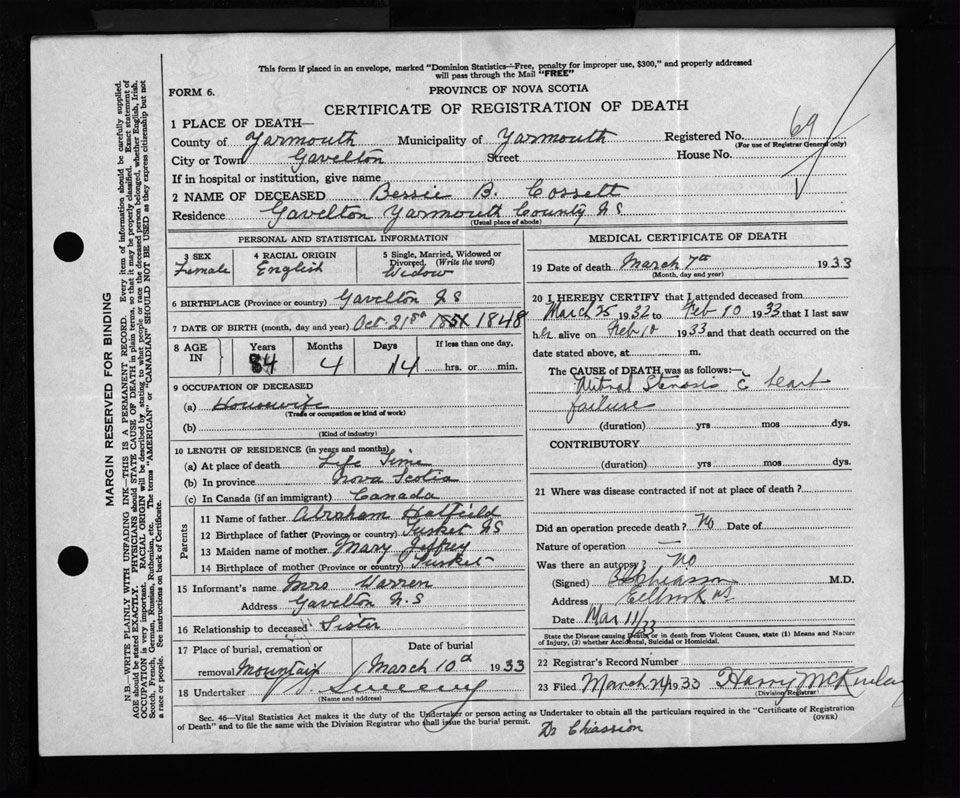 This form if placed in an envelope, marked "Dominion Statistics—Free, penalty for improper use, $300," and properly addressed
will pass through the Mail "FREE"
FORM 6.
PROVINCE OF NOVA SCOTIA
CERTIFICATE OF REGISTRATION OF DEATH
1 PLACE OF DEATH—
County of Yarmouth Municipality of Yarmouth Registered No. 69
(For use of Registrar General only)
City or Town Gavelton Street House No.
If in hospital or institution, give name
2 NAME OF DECEASED Bessie B. Cossett
Residence Gavelton Yarmouth County N S
(Usual place of abode)
PERSONAL AND STATISTICAL INFORMATION
3 SEX Female
4 RACIAL ORIGIN English
5 Single, Married, Widowed or Divorced. (Write the word) Widow
6 BIRTHPLACE (Province or country) Gavelton N S
7 DATE OF BIRTH (month, day and year) Oct. 21st 1848
8 AGE IN Years 84 Months 4 Days 14 If less than one day, hrs. or min.
9 OCCUPATION OF DECEASED
(a) Housewife
(Trade or occupation or kind of work)
(b)
(Kind of industry)
10 LENGTH OF RESIDENCE (in years and months)
(a) At place of death Life Time
(b) In province Nova Scotia
(c) In Canada (if an immigrant) Canada
Parents
11 Name of father Abraham Hatfield
12 Birthplace of father (Province or country) Tusket N S
13 Maiden name of mother Mary Jeffrey
14 Birthplace of mother (Province or country) Tusket
15 Informant's name Mrs Warren
Address Gavelton N.S
16 Relationship to deceased Sister
17 Place of burial, cremation or Date of burial
removal Mountain March 10th 1933
18 Undertaker Sweeny
(Name and address)
MEDICAL CERTIFICATE OF DEATH
19 Date of death March 7th 1933
(Month, day and year)
20 I HEREBY CERTIFY that I attended deceased from
March 25 1932 to Feb 10 1933 that I last saw
her alive on Feb 10 1933 and that death occurred on
date stated above, at m.
The CAUSE of DEATH was as follows:—
Mitral Stenosis c̄ heart
failure
(duration) yrs mos dys.
CONTRIBUTORY
(duration) yrs mos dys.
21 Where was disease contracted if not at place of death?
Did an operation precede death? No Date of
Nature of operation —
Was there an autopsy? No
(Signed) Chiasson M.D.
Address Eelbrook NS
Date Mar 11/33
State the Disease causing Death, or in death from Violent Causes, state (1) Means and Nature
of Injury, (2) whether Accidental, Suicidal or Homicidal.
22 Registrar's Record Number
23 Filed March 1933 Harry McKinlay
(Division Registrar)
Sec. 46—Vital Statistics Act makes it the duty of the Undertaker or person acting as Undertaker to obtain all the particulars required in the "Certificate of Registration
of Death" and to file the same with the Division Registrar who shall issue the burial permit.
(OVER)
Dr Chiassion
MARGIN RESERVED FOR BINDING
N.B.—WRITE PLAINLY WITH UNFADING INK—THIS IS A PERMANENT RECORD. Every item of information should be carefully supplied.
AGE should be stated EXACTLY. PHYSICIANS should STATE CAUSE OF DEATH in plain terms, so that it may be properly classified. Exact statement of
OCCUPATION is very important. RACIAL ORIGIN will be described by stating to what people or race the deceased person belonged, whether English, Irish,
Scotch, French, German, Russian, Ruthenian, etc. The terms "AMERICAN" or "CANADIAN" SHOULD NOT BE USED as they express citizenship but not
a race or people. See instructions on back of Certificate.